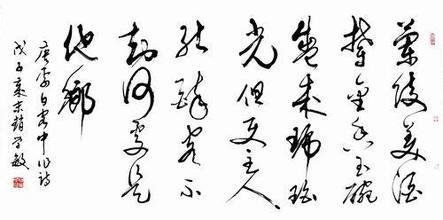 蘭陵美酒
鬱金香玉碗
盛来琥珀
光但使主人
能醉客不
知何處是
他鄉
唐李白客中作詩
戊子末趙学敏